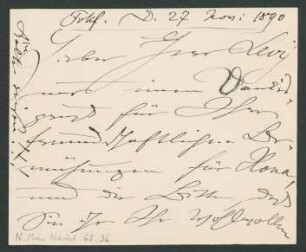 Frkf. D. 27 Juni 1890
Lieber Herr Levi
nur einen Dankes
gruß für Ihre
freundschaftlichen Be-
mühungen für Ilona,
und die Bitte, daß
Sie ihr Ihr Wohlwollen
N. Mus. Nachl. 68, 36